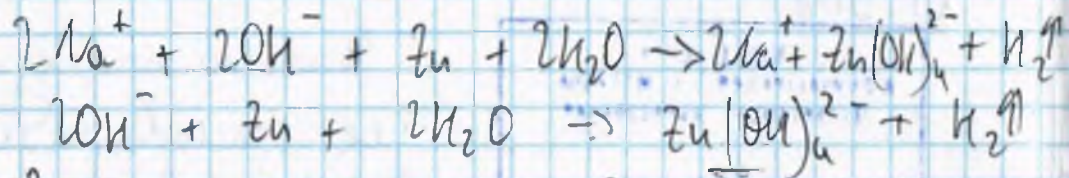 2Na⁺ + 2OH⁻ + Zn + 2H₂O → 2Na⁺ + Zn(OH)₄²⁻ + H₂↑
2OH⁻ + Zn + 2H₂O → Zn(OH)₄²⁻ + H₂↑